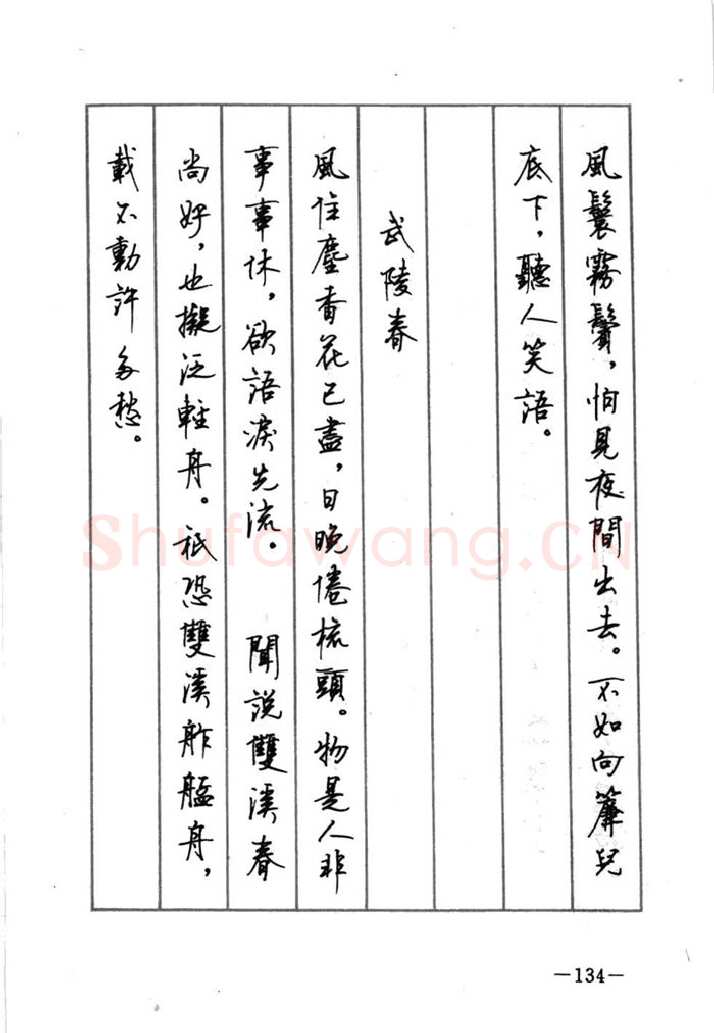 風鬟霧鬢，怕見夜間出去。不如向簾兒
底下，聽人笑語。
武陵春
風住塵香花已盡，日晚倦梳頭。物是人非
事事休，欲語淚先流。 聞說雙溪春
尚好，也擬泛輕舟。祇恐雙溪舴艋舟，
載不動許多愁。
Shufawang.CN
—134—